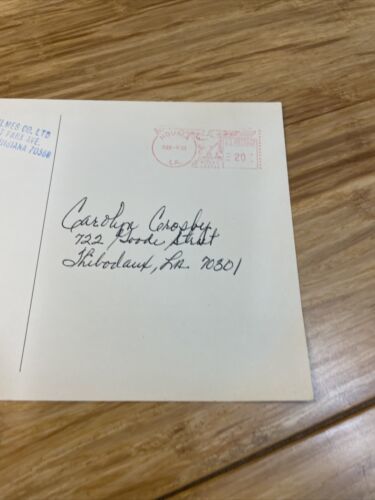 LMES CO. LTD
PARK AVE.
ISIANA 70360
HOUMA
LA.
20
Carolyn Crosby
722 Goode Street
Thibodaux, La. 70301